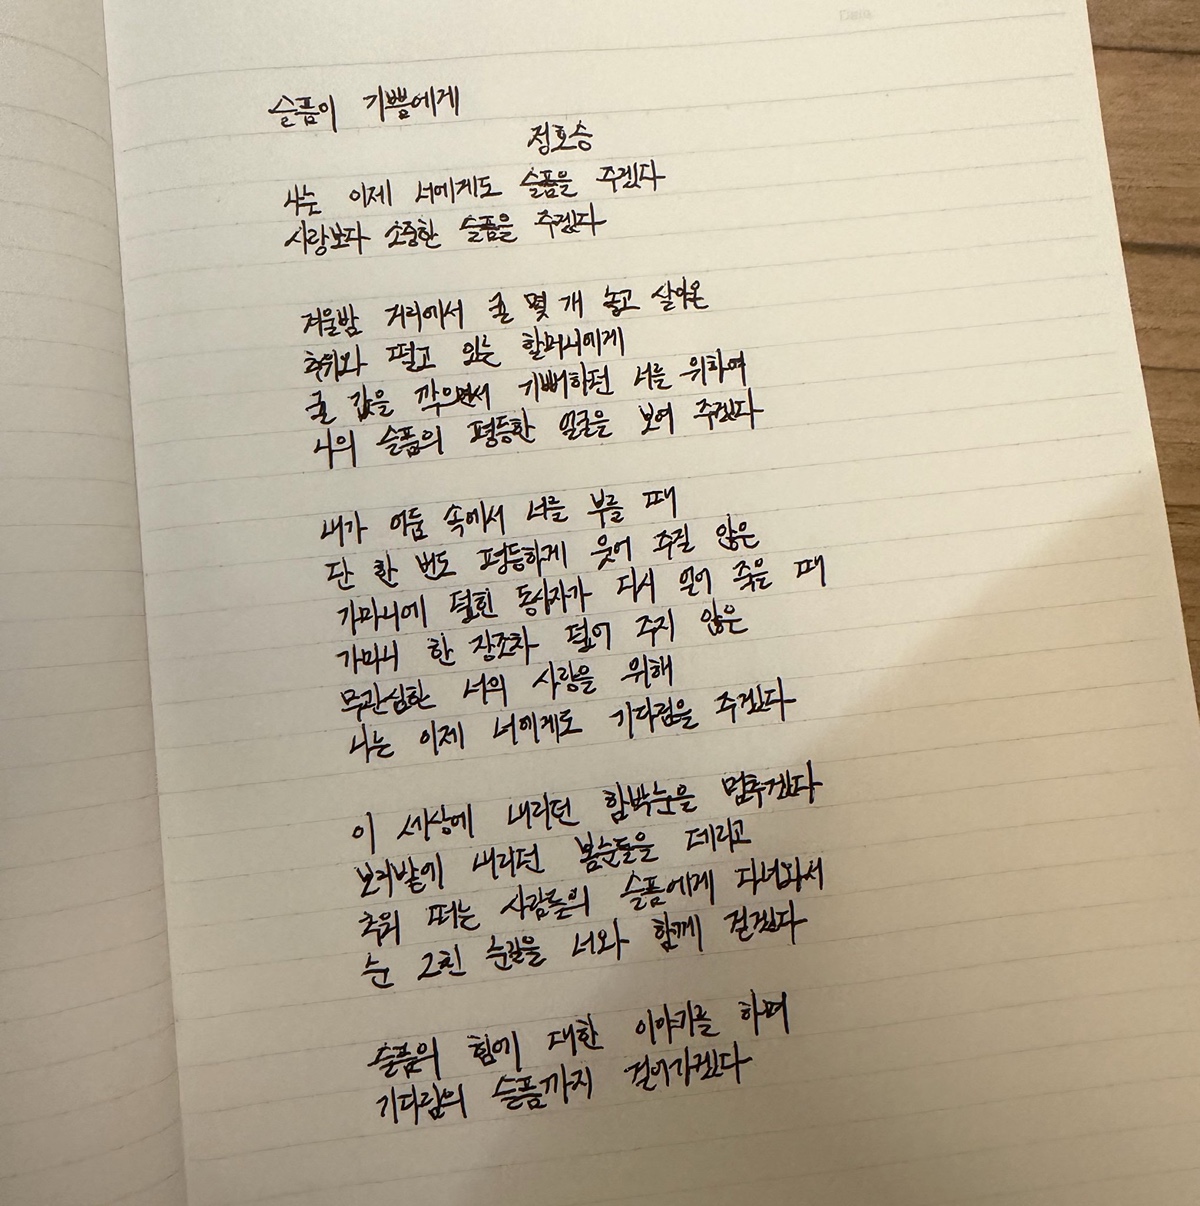 슬픔이 기쁨에게
정호승
나는 이제 너에게도 슬픔을 주겠다
사랑보다 소중한 슬픔을 주겠다
겨울밤 거리에서 귤 몇 개 놓고 살아온
추위와 떨고 있는 할머니에게
귤 값을 깎으면서 기뻐하던 너를 위하여
나의 슬픔의 평등한 얼굴을 보여 주겠다
내가 어둠 속에서 너를 부를 때
단 한 번도 평등하게 웃어 주질 않은
가마니에 덮힌 동사자가 다시 얼어 죽을 때
가마니 한 장조차 덮어 주지 않은
무관심한 너의 사랑을 위해
나는 이제 너에게도 기다림을 주겠다
이 세상에 내리던 함박눈을 멈추겠다
보리밭에 내리던 봄눈들을 데리고
추위 떠는 사람들의 슬픔에게 다녀와서
눈 그친 눈길을 너와 함께 걷겠다
슬픔의 힘에 대한 이야기를 하며
기다림의 슬픔까지 걸어가겠다